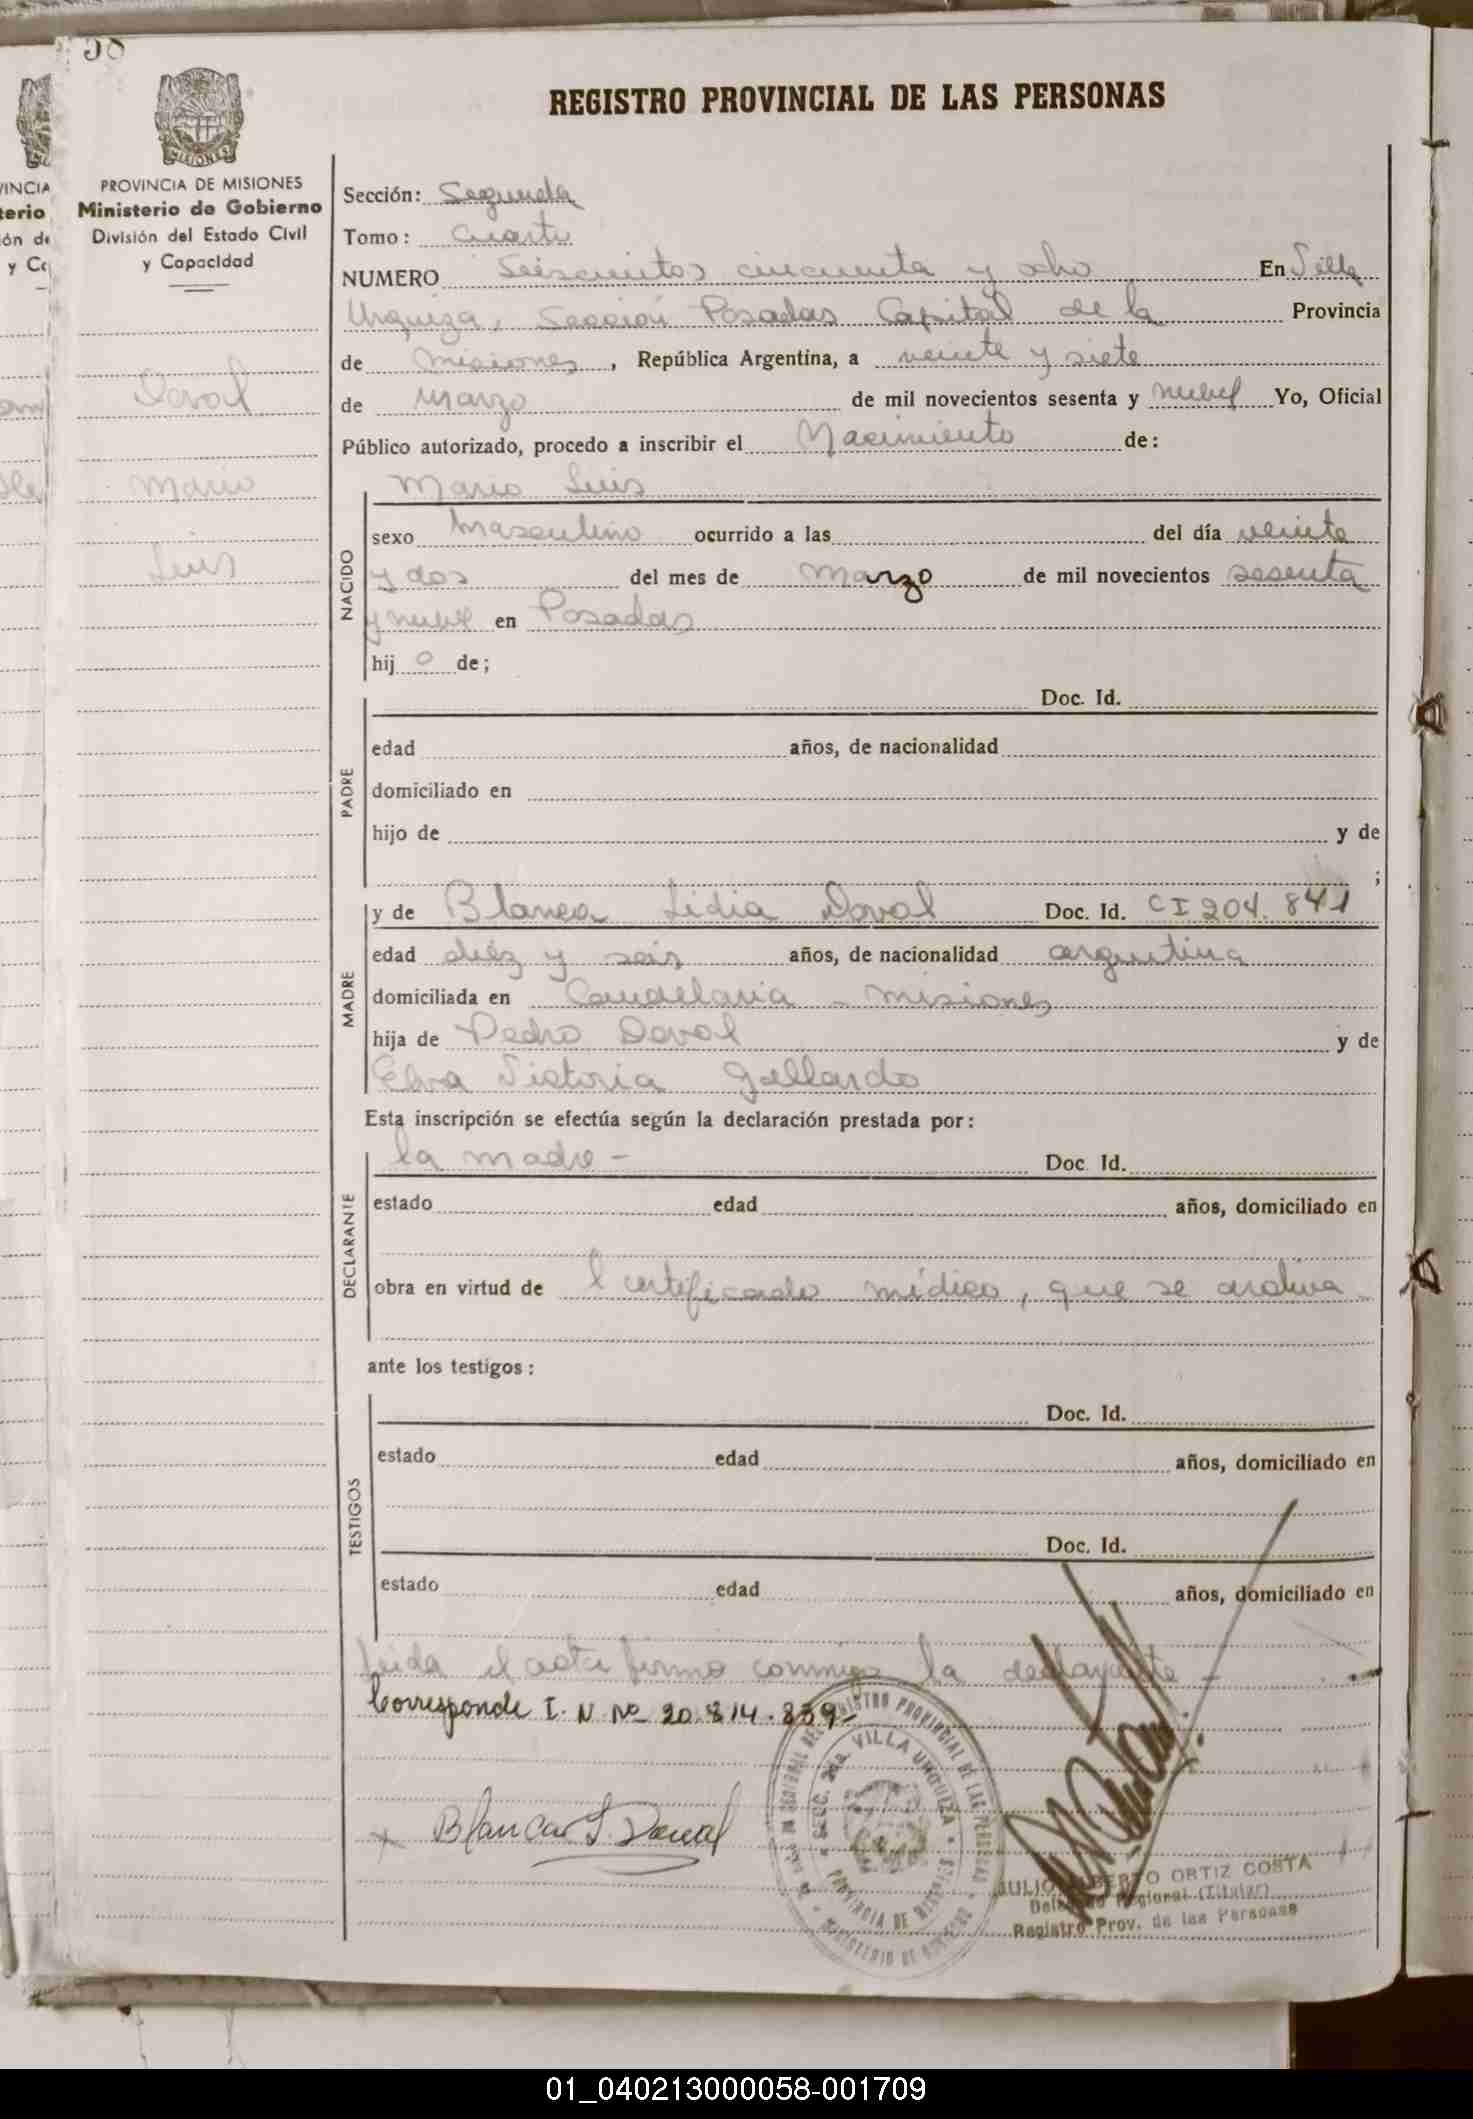 58
REGISTRO PROVINCIAL DE LAS PERSONAS
MISIONES
PROVINCIA DE MISIONES
Ministerio de Gobierno
División del Estado Civil
y Capacidad
Doval
Mario
Luis
Sección: Segunda
Tomo: Cuarto
NUMERO Seiscientos cincuenta y ocho En Villa
Urquiza, Sección Posadas Capital de la Provincia
de Misiones, República Argentina, a veinte y siete
de Marzo de mil novecientos sesenta y nueve Yo, Oficial
Público autorizado, procedo a inscribir el Nacimiento de:
NACIDO
Mario Luis
sexo Masculino ocurrido a las del día veinte
y dos del mes de Marzo de mil novecientos sesenta
y nueve en Posadas
hij o de;
PADRE
Doc. Id.
edad años, de nacionalidad
domiciliado en
hijo de y de
;
MADRE
y de Blanca Lidia Doval Doc. Id. CI 204.841
edad diéz y seis años, de nacionalidad argentina
domiciliada en Candelaria - Misiones
hija de Pedro Doval y de
Victoria Gallardo
Esta inscripción se efectúa según la declaración prestada por:
DECLARANTE
la madre - Doc. Id.
estado edad años, domiciliado en
obra en virtud de l certificado médico, que se archiva
ante los testigos:
TESTIGOS
Doc. Id.
estado edad años, domiciliado en
Doc. Id.
estado edad años, domiciliado en
Leida el acta firma conmigo la declarante -
Corresponde I. N Nº 20.814.859-
x Blanca L. Doval
REGISTRO PROVINCIAL DE LAS PERSONAS
SECC. 2da. VILLA URQUIZA
PROVINCIA DE MISIONES
MINISTERIO DE GOBIERNO
JULIO ALBERTO ORTIZ COSTA
Delegado Regional (Titular)
Registro Prov. de las Personas
01_040213000058-001709